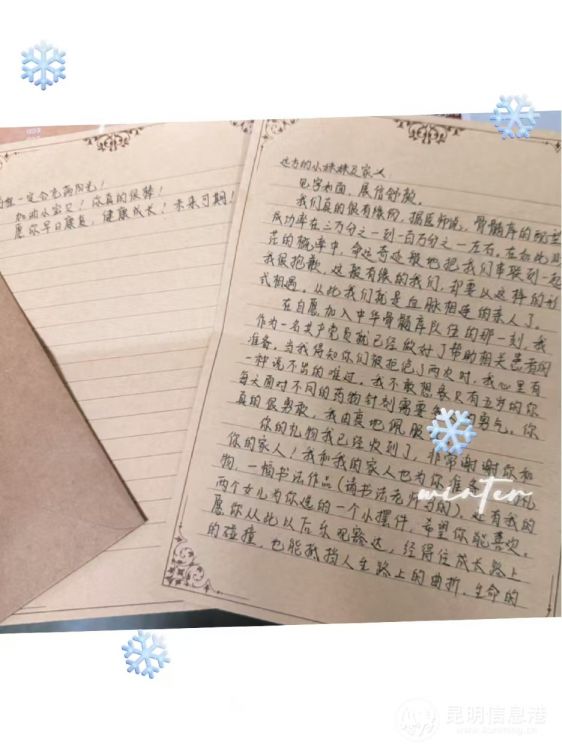 远方的小妹妹及家人
见字如面,展信舒颜。
我们真的很有缘的,据医师说,骨髓库的配型
成功率在三万分之一到一百万分之一左右。在如此
茫的概率中,命运奇迹般地把我们串联到一起
我很抱歉,这般有缘的我们,却要以这样的形
式相遇。从此我们就是血脉相连的亲人了。
在自愿加入中华骨髓库队伍的那一刻,我
作为一名共产党员就已经做好了帮助相关患者的
准备。当我得知你们被拒绝了两次时,我心里有
一种说不出的难过。我不敢想象只有五岁的你
每天面对不同的药物针剂需要 勇气。你
真的很勇敢,我由衷地佩服
你的礼物我已经收到了。非常谢谢你和
你的家人!我和我的家人也为你准备
物,一幅书法作品(请书法老师写的),还有我的
两个女儿为你选的一个小摆件,希望你能喜欢。
愿你从此以后乐观豁达,经得住成长路上
的碰撞,也能抵挡人生路上的曲折,生命的
一定会充满阳光!
加油小宝贝!你真的很棒!
愿你早日康复,健康成长!未来可期!
winter
昆明信息港
www.kunming.cn